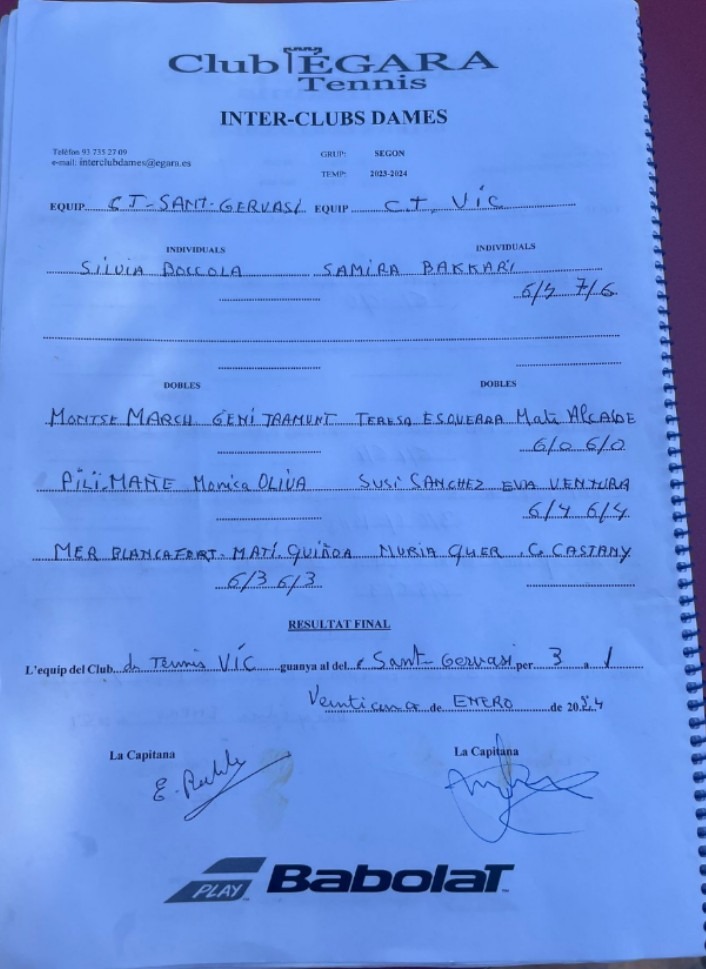 Club EGARA
Tennis
INTER-CLUBS DAMES
Telèfon 93 735 27 09
e-mail: interclubdames@egara.es
GRUP: SEGON
TEMP: 2023-2024
EQUIP CT-SANT-GERVASI EQUIP C.T. VIC
INDIVIDUALS INDIVIDUALS
SILVIA BOCCOLA SAMIRA BAKKARI
7/6
DOBLES DOBLES
MONTSE MARCH GENI TRAMUNT TERESA ESQUERRA Mati Alcalde
6/0 6/0
PILI-MAÑE Monica OLIVA SUSI SANCHEZ EVA VENTURA
6/4 6/4
MER BLANCAFORT-MATI QUIÑOA NURIA QUER C. CASTANY
6/3 6/3
RESULTAT FINAL
L'equip del Club de Tennis VIC guanya al del Sant-Gervasi per 3 a 1
de ENERO de 2024
La Capitana La Capitana
PLAY BabolaT